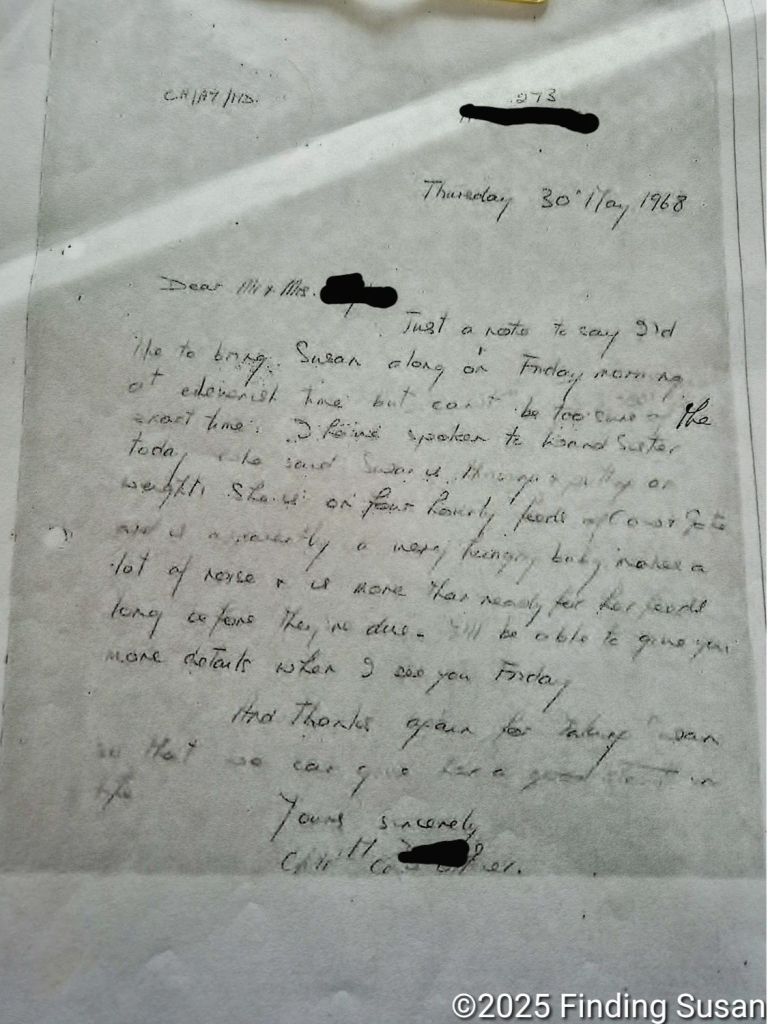 CH/AY/MD.
273
Thursday 30 May 1968
Dear Mr & Mrs.
Just a note to say I'd
like to bring Susan along on Friday morning
at elevenish time but can't be too sure of the
exact time. I have spoken to Ward Sister
today who said Susan is thriving & putting on
weight. She is on four hourly feeds of Cow & Gate
and is apparently a very hungry baby makes a
lot of noise & is more than ready for her feeds
long before they're due. I'll be able to give you
more details when I see you Friday
And thanks again for taking Susan
so that we can give her a good start in
life
Yours sincerely
©2025 Finding Susan